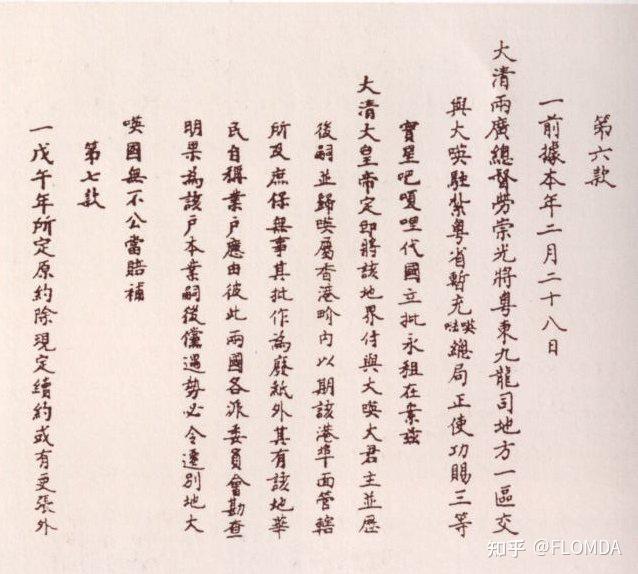 第六款
一前據本年二月二十八日
大清兩廣總督勞崇光將粵東九龍司地方一區交
與大㗸駐紮粵省暫充㗸𠵽總局正使功賜三等
寶星吧嗄哩代國立批永租在案茲
大清大皇帝定即將該地界付與大㗸大君主並歷
後嗣並歸㗸屬香港界內以期該港埠面管轄
所及庶保無事其批作為廢紙外其有該地華
民自稱業戶應由彼此兩國各派委員會勘查
明果為該戶本業嗣後儻遇勢必令遷別地大
㗸國無不公當賠補
第七款
一戊午年所定原約除現定續約或有更張外
知乎 @FLOMDA